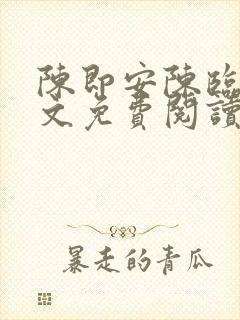 陳即安陳臨
文免費閱讀
暴走的青瓜